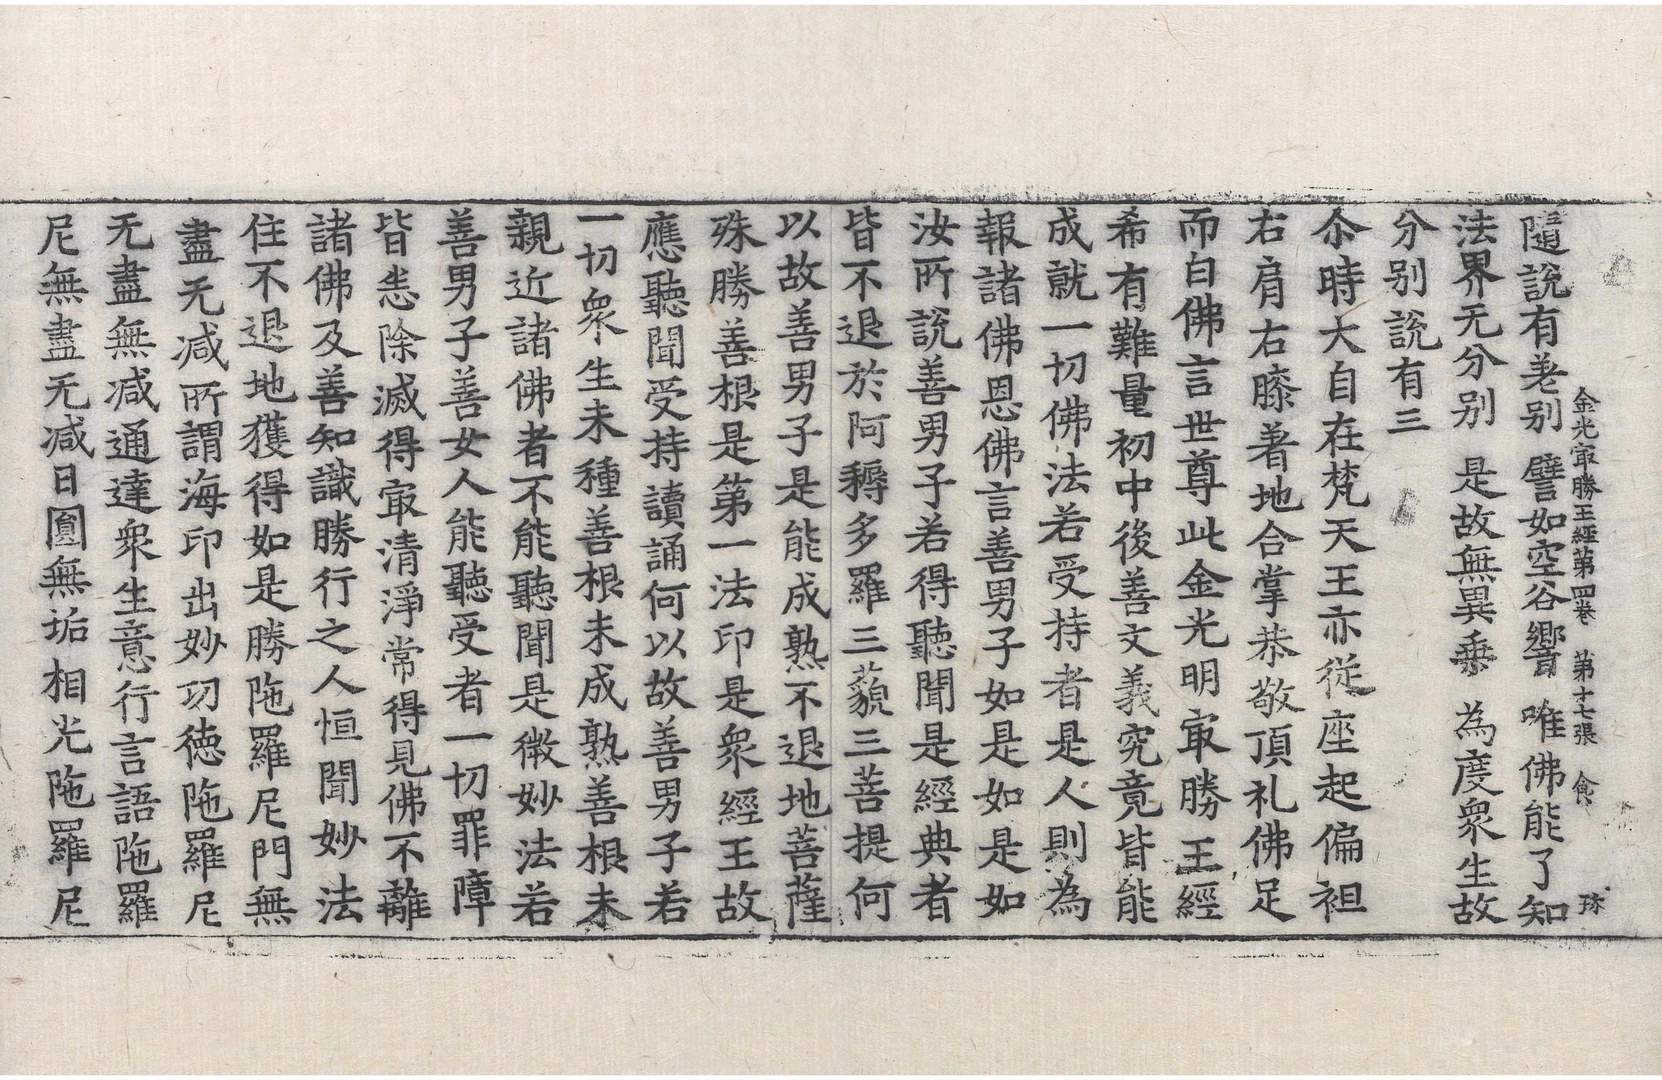 金光㝡勝王經第四卷 第十七張 食 珎
隨說有差別 譬如空谷響 唯佛能了知
法界无分别 是故無異乗 為度衆生故
分別說有三
尒時大自在梵天王亦從座起偏袒
右肩右膝著地合掌恭敬頂礼佛足
而白佛言世尊此金光明㝡勝王經
希有難量初中後善文義究竟皆能
成就一切佛法若受持者是人則為
報諸佛恩佛言善男子如是如是如
汝所說善男子若得聽聞是經典者
皆不退於阿耨多羅三藐三菩提何
以故善男子是能成熟不退地菩薩
殊勝善根是第一法印是衆經王故
應聽聞受持讀誦何以故善男子若
一切衆生未種善根未成熟善根未
親近諸佛者不能聽聞是微妙法若
善男子善女人能聽受者一切罪障
皆悉除滅得㝡清淨常得見佛不離
諸佛及善知識勝行之人恒聞妙法
住不退地獲得如是勝陁羅尼門無
盡无减所謂海印出妙功徳陁羅尼
无盡無减通達衆生意行言語陁羅
尼無盡无减日圓無垢相光陁羅尼